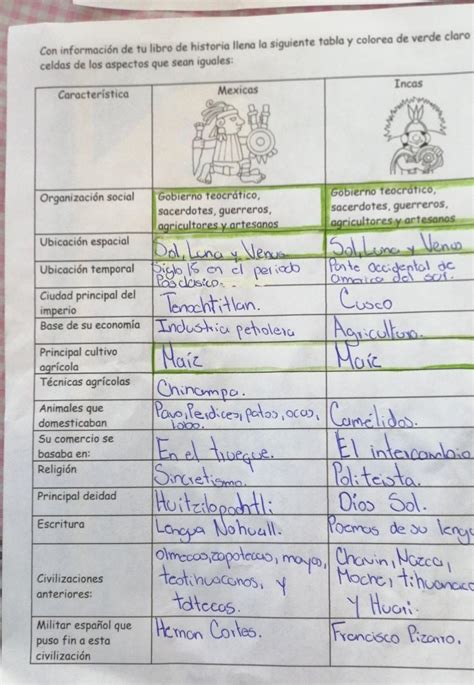 Con información de tu libro de historia llena la siguiente tabla y colorea de verde claro
celdas de los aspectos que sean iguales:
Característica
Mexicas
Incas
Organización social
Gobierno teocrático,
sacerdotes, guerreros,
agricultores y artesanos
Gobierno teocrático,
sacerdotes, guerreros,
agricultores y artesanos
Ubicación espacial
Sol, Luna y Venus
Sol, Luna y Venus
Ubicación temporal
Siglo 15 en el periodo
Posclásico.
Parte occidental de
America del sur.
Ciudad principal del
imperio
Tenochtitlan.
Cusco
Base de su economía
Industria petrolera
Agricultura.
Principal cultivo
agrícola
Maíz
Maíz
Técnicas agrícolas
Chinampa.
Animales que
domesticaban
Pavo, Perdices, patos, ocas,
lobo.
Camélidos.
Su comercio se
basaba en:
En el trueque.
El intercambio
Religión
Sincretismo.
Politeista.
Principal deidad
Huitzilopochtli
Dios Sol.
Escritura
Lengua Nahuatl.
Poemas de su lengu
Civilizaciones
anteriores:
olmecas, zapotecas, mayas,
teotihuacanos, y
toltecas.
Chavin, Nazca,
Moche, tihuanaco
y Huari.
Militar español que
puso fin a esta
civilización
Hernan Cortes.
Francisco Pizarro.